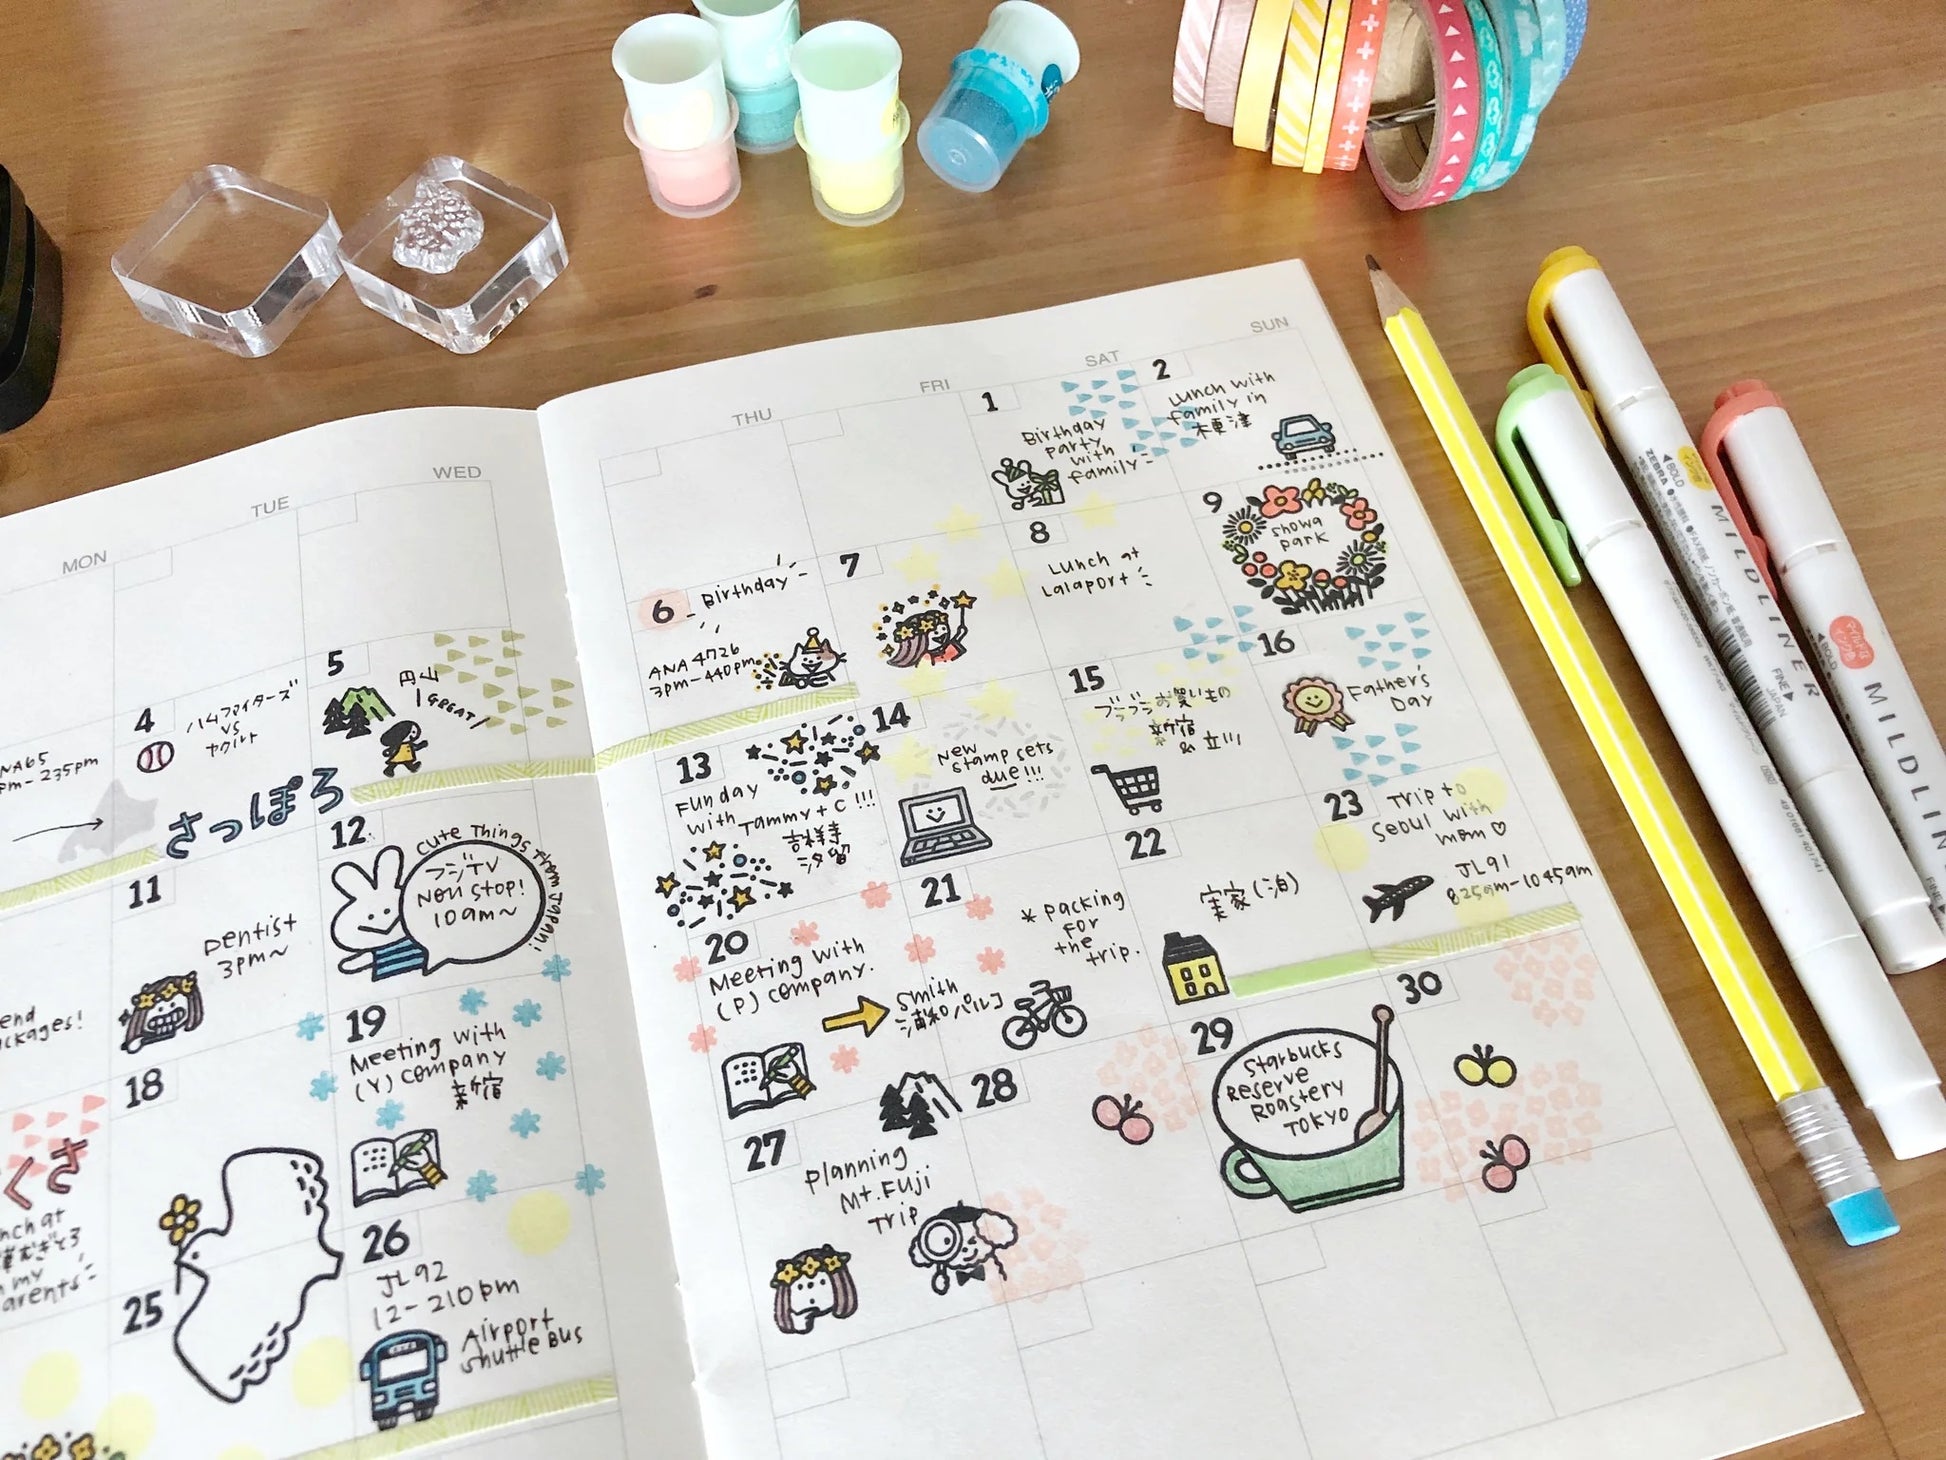 MON
TUE
WED
THU
FRI
SAT
SUN
1
Birthday
party
with
family
2
Lunch with
family in
木更津
4
ハムファイターズ
VS
ヤクルト
さっぽろ
5
円山
GREAT
6
Birthday
ANA 4726
3pm-440pm
7
8
Lunch at
Lalaport
9
Showa
Park
pm-235pm
11
Dentist
3pm~
12
Cute Things From Japan!
フジTV
Non Stop!
10am~
13
Funday
with Tammy + C !!!
吉祥寺
汐留
14
New
stamp sets
due!!!
15
ブラブラお買いもの
新宿
& 立川
16
Father's
Day
18
19
Meeting with
(Y) company
新宿
20
Meeting with
(P) company.
Smith
浦和パルコ
21
* Packing
for
the
trip.
22
実家(泊)
23
Trip to
Seoul with
mom ♡
JL91
825am-1045am
くさ
25
26
JL92
12-210pm
Airport
Shuttle Bus
27
Planning
Mt. Fuji
Trip
28
29
Starbucks
Reserve
Roastery
Tokyo
30
BOLD
ZEBRA
MILDLINER
FINE
JAPAN
マイルドな
インク色
BOLD
MILDLIN